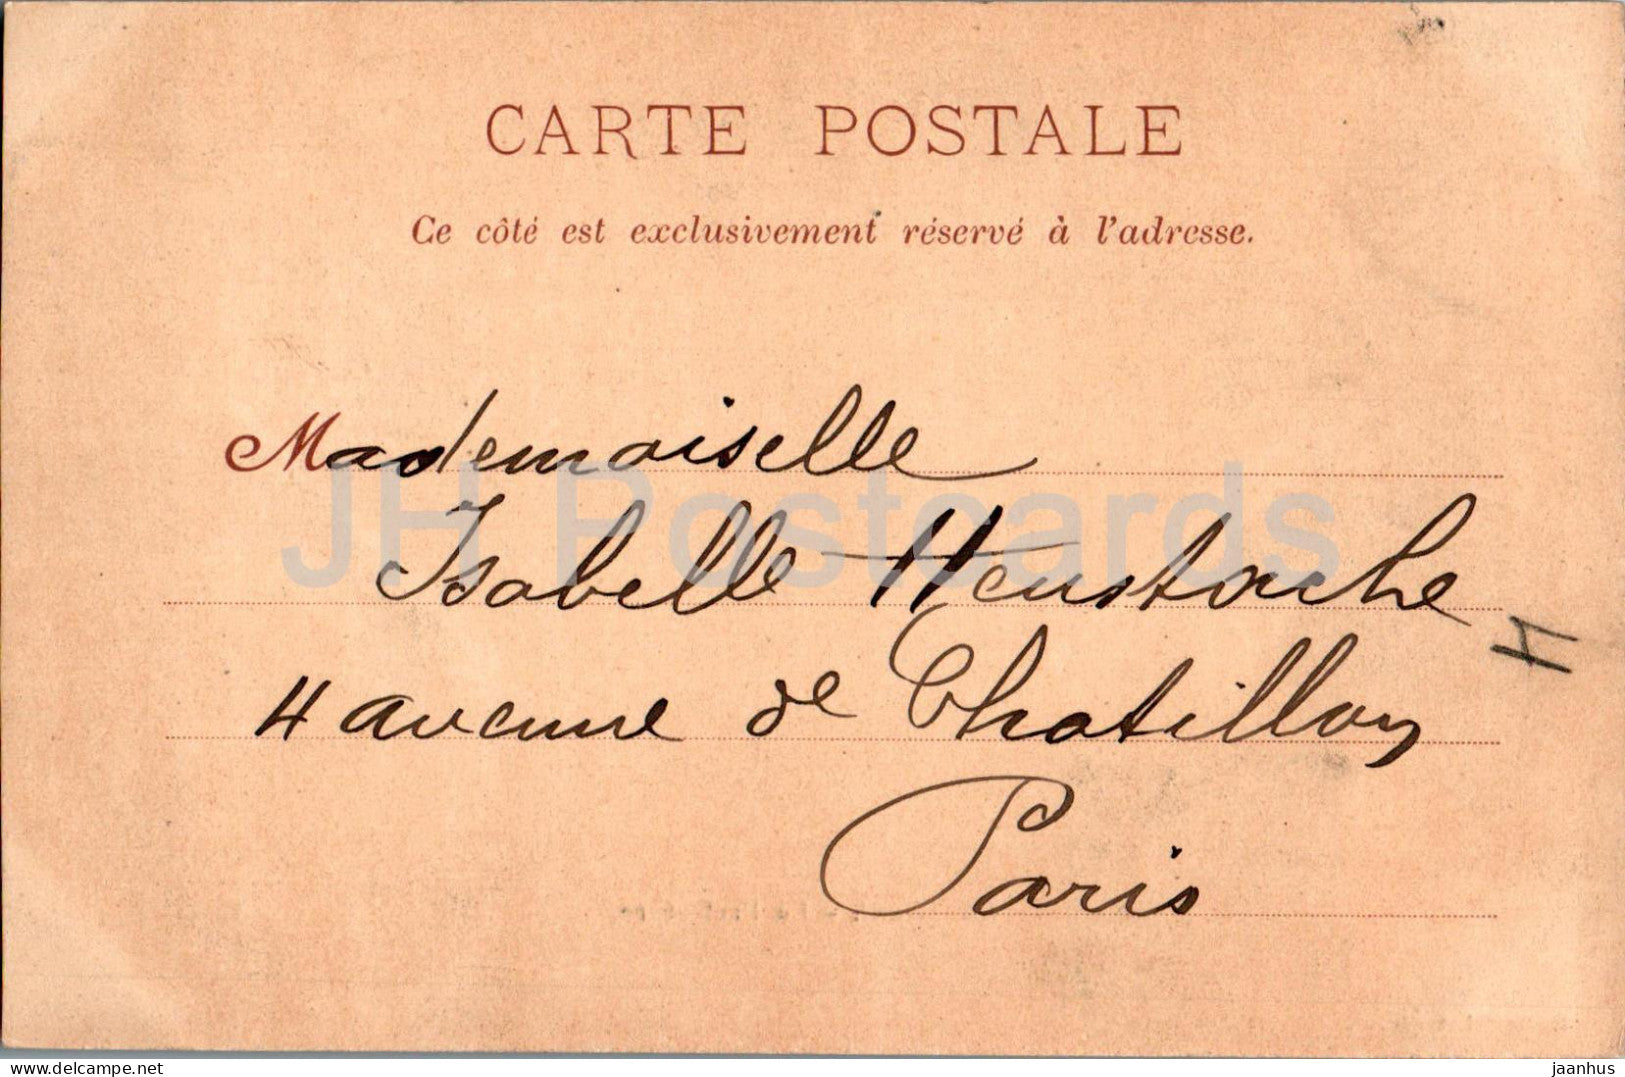 CARTE POSTALE
Ce côté est exclusivement réservé à l'adresse.
Mademoiselle
Isabelle Heustache
4 avenue de Chatillon
Paris
JH Postcards
delcampe.net
jaanhus